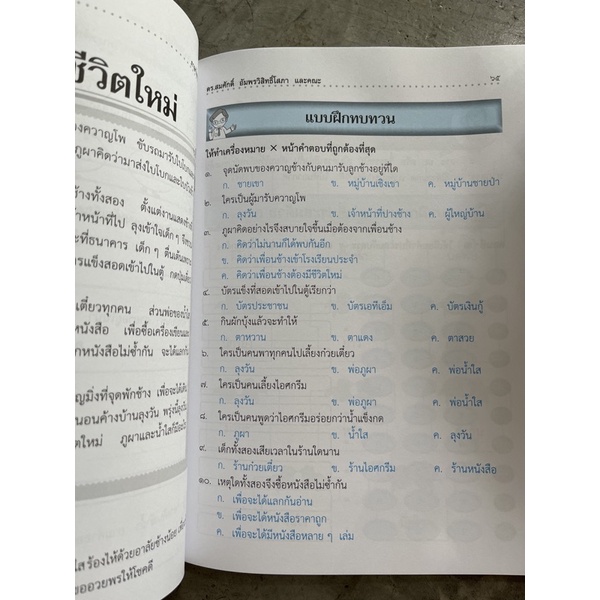 ชีวิตใหม่
องควาญโพ ขับรถมารับใบโบกและใบบัว
ภูผาคิดว่ามาส่งใบโบกและใบบัว
ช้างทั้งสอง ตั้งแต่งานแสดงช้าง
จ้าหน้าที่ไป ลุงเข้าใจเด็ก ๆ จึงพา
ะที่ธนาคาร เด็ก ๆ ตื่นเต้นเพราะ
ตรแข็งสอดเข้าไปในตู้ กดปุ่ม
เตี๋ยวทุกคน ส่วนพ่อของน้ำใส
หนังสือ เพื่อซื้อเครื่องเขียนและ
กหนังสือไม่ซ้ำกัน จะได้แลกกัน
ญมิ่งที่จุดพักช้าง เพื่อจะได้เดิน
นอนค้างบ้านลุงวัน พรุ่งนี้ลุงวัน
ตใหม่ ภูผาและน้ำใสก็มี
ใส ร้องไห้ด้วยอาลัยช้างน้อย
ขออวยพรให้โชคดี
ดร.สมศักดิ์ อัมพรวิสิทธิ์โสภา และคณะ ๖๕
แบบฝึกทบทวน
ให้ทำเครื่องหมาย × หน้าคำตอบที่ถูกต้องที่สุด
๑. จุดนัดพบของควาญช้างกับคนมารับลูกช้างอยู่ที่ใด
ก. ชายเขา ข. หมู่บ้านเชิงเขา ค. หมู่บ้านชายป่า
๒. ใครเป็นผู้มารับควาญโพ
ก. ลุงวัน ข. เจ้าหน้าที่ปางช้าง ค. ผู้ใหญ่บ้าน
๓. ภูผาคิดอย่างไรจึงสบายใจขึ้นเมื่อต้องจากเพื่อนช้าง
ก. คิดว่าไม่นานก็ได้พบกันอีก
ข. คิดว่าเพื่อนช้างเข้าโรงเรียนประจำ
ค. คิดว่าเพื่อนช้างต้องมีชีวิตใหม่
๔. บัตรแข็งที่สอดเข้าไปในตู้เรียกว่า
ก. บัตรประชาชน ข. บัตรเอทีเอ็ม ค. บัตรเงินกู้
๕. กินผักบุ้งแล้วจะทำให้
ก. ตาหวาน ข. ตาแดง ค. ตาสวย
๖. ใครเป็นคนพาทุกคนไปเลี้ยงก๋วยเตี๋ยว
ก. ลุงวัน ข. พ่อภูผา ค. พ่อน้ำใส
๗. ใครเป็นคนเลี้ยงไอศกรีม
ก. ลุงวัน ข. พ่อภูผา ค. พ่อน้ำใส
๘. ใครเป็นคนพูดว่าไอศกรีมอร่อยกว่าน้ำแข็งกด
ก. ภูผา ข. น้ำใส ค. ลุงวัน
๙. เด็กทั้งสองเสียเวลาในร้านใดนาน
ก. ร้านก๋วยเตี๋ยว ข. ร้านไอศกรีม ค. ร้านหนังสือ
๑๐. เหตุใดทั้งสองจึงซื้อหนังสือไม่ซ้ำกัน
ก. เพื่อจะได้แลกกันอ่าน
ข. เพื่อจะได้หนังสือราคาถูก
ค. เพื่อจะได้มีหนังสือหลาย ๆ เล่ม